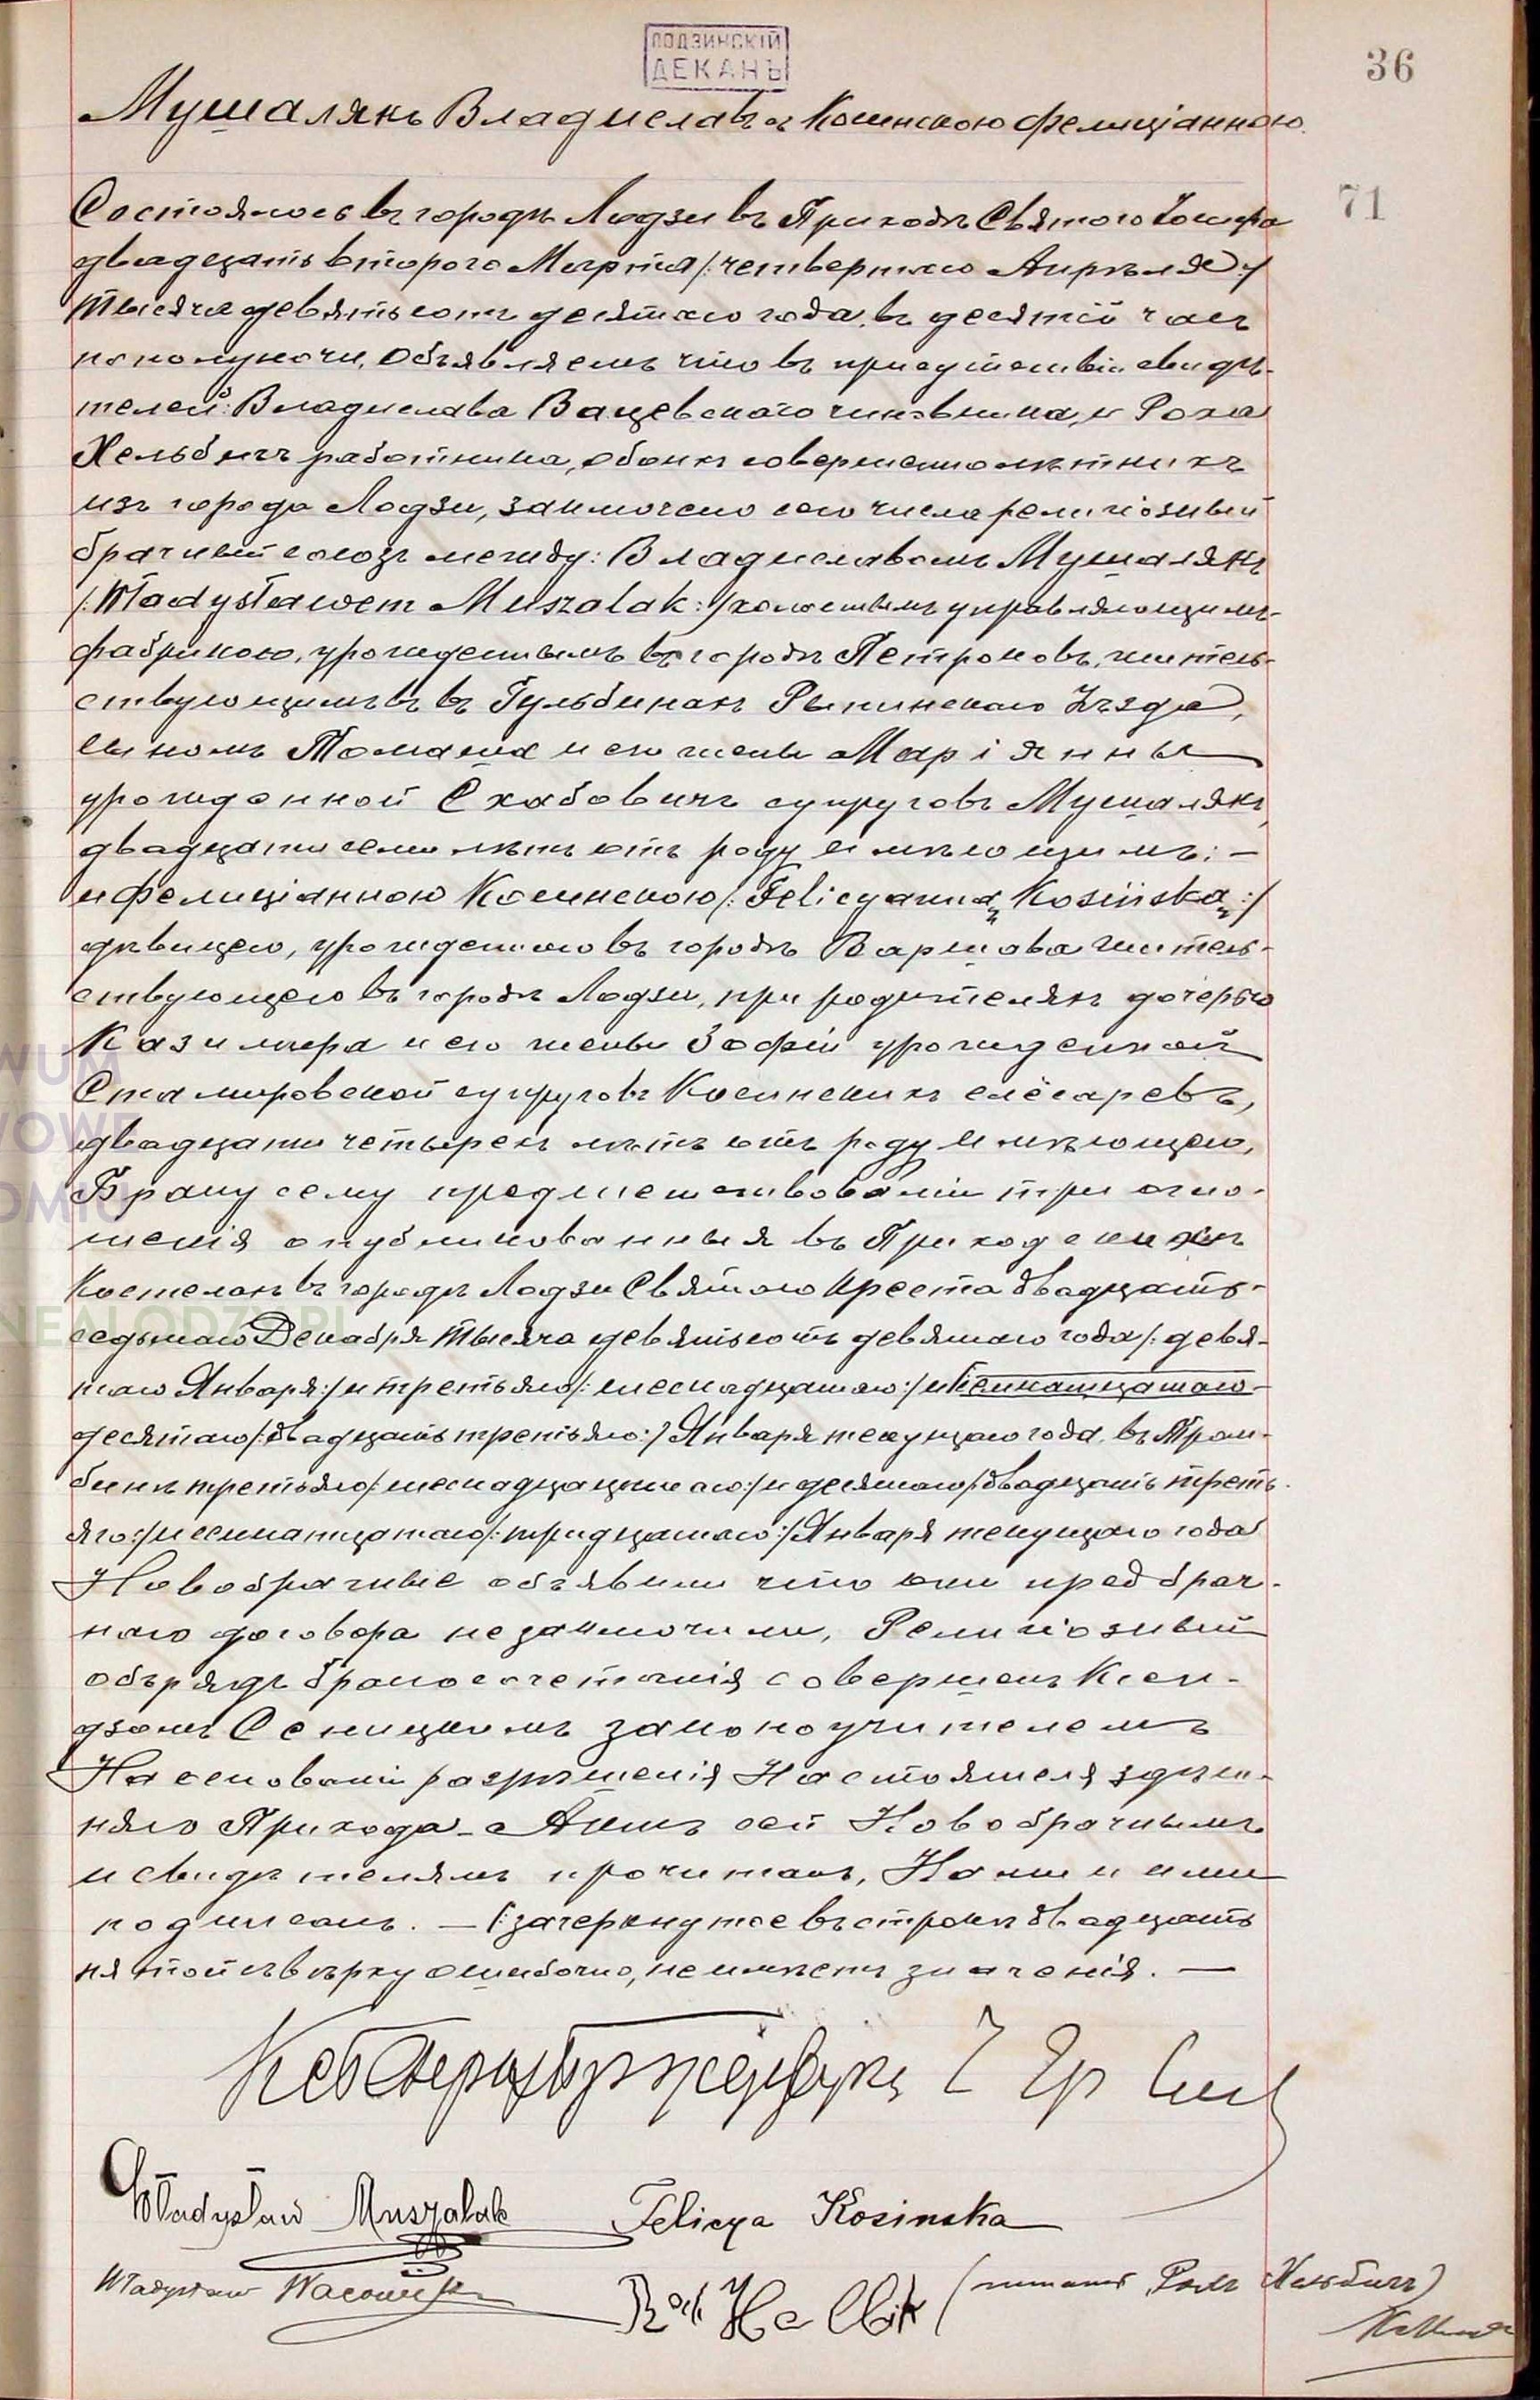 ЛОДЗИНСКІЙ
ДЕКАНЪ
36
Мушалякъ Владиславъ съ Косинскою Фелиціанною.
71
Состоялось въ городѣ Лодзи въ Приходѣ Святого Іосифа
двадцать второго Марта /:четвертаго Апрѣля:/
тысяча девятьсотъ десятаго года, въ десятій часъ
пополуночи, Объявляемъ что въ присутствіи свидѣ-
телей: Владислава Вацевскаго чиновника, и Роха
Хельбикъ работника, обоихъ совершеннолѣтнихъ
изъ города Лодзи, заключено сего числа религіозный
брачный союзъ между: Владиславомъ Мушалякъ
/:Władysławem Muszalak:/ холостымъ управляющимъ
фабрикою, урожденнымъ въ городѣ Петроковъ, житель-
ствующимъ въ въ Гульбинахъ Рыпинскаго Уѣзда,
сыномъ Томаша и его жены Маріянны
урожденной Скабовичъ супруговъ Мушалякъ,
двадцати семи лѣтъ отъ роду имѣющимъ: —
и Фелиціанною Косинскою /:Felicyanną Kosińską:/
дѣвицею, урожденною въ городѣ Варшава житель-
ствующею въ городѣ Лодзи, при родителяхъ дочерью
Казимера и его жены Зофіи урожденной
Стамировской супруговъ Косинскихъ слёсаревъ,
двадцати четырехъ лѣтъ отъ роду имѣющею,
Браку сему предшествовали три огло-
шенія опубликованныя въ Приходскихъ
Костелахъ въ городѣ Лодзи Святого Креста двадцать-
седьмаго Декабря тысяча девятьсотъ девятаго года /:девя-
таго Января:/ и третьяго /:шеснадцатаго:/ и семнатцатаго
десятаго /:двадцать третьяго:/ Января текущаго года, въ Тром-
бинѣ третьяго /:шеснадцацтаго:/ и десятаго /:двадцать треть-
яго:/ и семнатцатаго /:тридцатаго:/ Января текущаго года
Новобрачные объявили что они предбрач-
наго договора не заключили, Религіозный
обърядъ бракосочетанія совершенъ Ксен-
дзомъ Сеницкимъ законоучителемъ
На основаніи разрѣшенія Настоятеля здѣш-
няго Прихода. Актъ сей Новобрачнымъ
и свидѣтелямъ прочитанъ, Нами и ими
подписанъ. — (:зачеркнутое въ строкѣ двадцать
пятой съ вѣрху ошибочно, не имѣетъ значенія. —
Władysław Muszalak Felicya Kosinska
Władysław
Roch Helbik (читать Рохъ Хельбикъ)